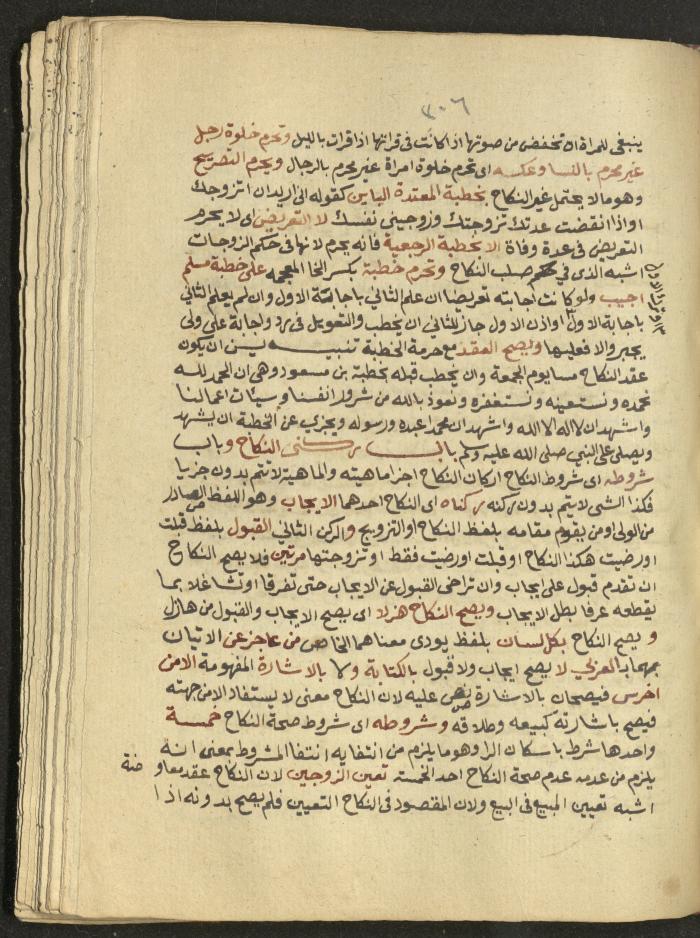 ٣٠٦
ينبغي للمراة ان تخفض من صوتها اذا كانت في قراتها اذا قرات بالليل وتحرم خلوة رجل
غير محرم بالنسا وعكسه اى تحرم خلوة امراة غير محرم بالرجال ويحرم التصريح
وهو مالا يحتمل غير النكاح بخطبة المعتدة الباين كقوله انى اريد ان اتزوجك
او اذا انقضت عدتك تزوجتك وزوجينى نفسك لا التعريض اى لا يحرم
التعريض فى عدة وفاة الا بخطبة الرجعية فانه يحرم لانها في حكم الزوجات
اشبه الذى في صلب النكاح وتحرم خطبة بكسر الخا المعجمه على خطبة مسلم
اجيب ولو كانت اجابته تعريضا ان علم الثاني باجابة الاول وان لم يعلم الثاني
باجابة الاول او اذن الاول جاز للثاني ان يخطب والتعويل في رد واجابة على ولى
يجبر والا فعليها ويصح العقد مع حرمة الخطبة تنبيه يسن ان يكون
عقد النكاح مسا يوم الجمعة وان يخطب قبله بخطبة بن مسعود وهى ان الحمد لله
نحمده ونستعينه ونستغفره ونعوذ بالله من شرور انفسنا وسيئات اعمالنا
واشهد ان لا اله الا الله واشهد ان محمدا عبده ورسوله ويجزى عن الخطبة ان يشهد
ويصلى على النبي صلى الله عليه وسلم باب ركنى النكاح وباب
شروطه اى شروط النكاح اركان النكاح اجزا ماهيته والماهية لا تتم بدون جزيا
فكذا الشى لا يتم بدون ركنه ركناه اى النكاح احدهما الايجاب وهو اللفظ الصادر
من الولى او من يقوم مقامه بلفظ النكاح او التزويج والركن الثاني القبول بلفظ قبلت
او رضيت هكذا النكاح او قبلت او رضيت فقط او تزوجتها مرتين فلا يصح النكاح
ان تقدم قبول على ايجاب وان تراخى القبول عن الايجاب حتى تفرقا او تشاغلا بما
يقطعه عرفا بطل الايجاب ويصح النكاح هزلا اى يصح الايجاب والقبول من هازل
و يصح النكاح بكل لسان بلفظ يودى معناهما الخاص من عاجز عن الاتيان
بهما بالعربى لا يصح ايجاب ولا قبول بالكتابة ولا بالاشارة المفهومة الا من
اخرس فيصحان بالاشارة نص عليه لان النكاح معنى لا يستفاد الا من جهته
فيصح باشارته كبيعه وطلاقه وشروطه اى شروط صحة النكاح خمسة
واحدها شرط باسكان الرا وهو ما يلزم من انتفايه انتفا المشروط بمعنى انه
يلزم من عدمه عدم صحة النكاح احد الخمسة تعين الزوجين لان النكاح عقد معاو
ضة
اشبه تعيين المبيع في البيع ولان المقصود فى النكاح التعيين فلم يصح بدونه اذا